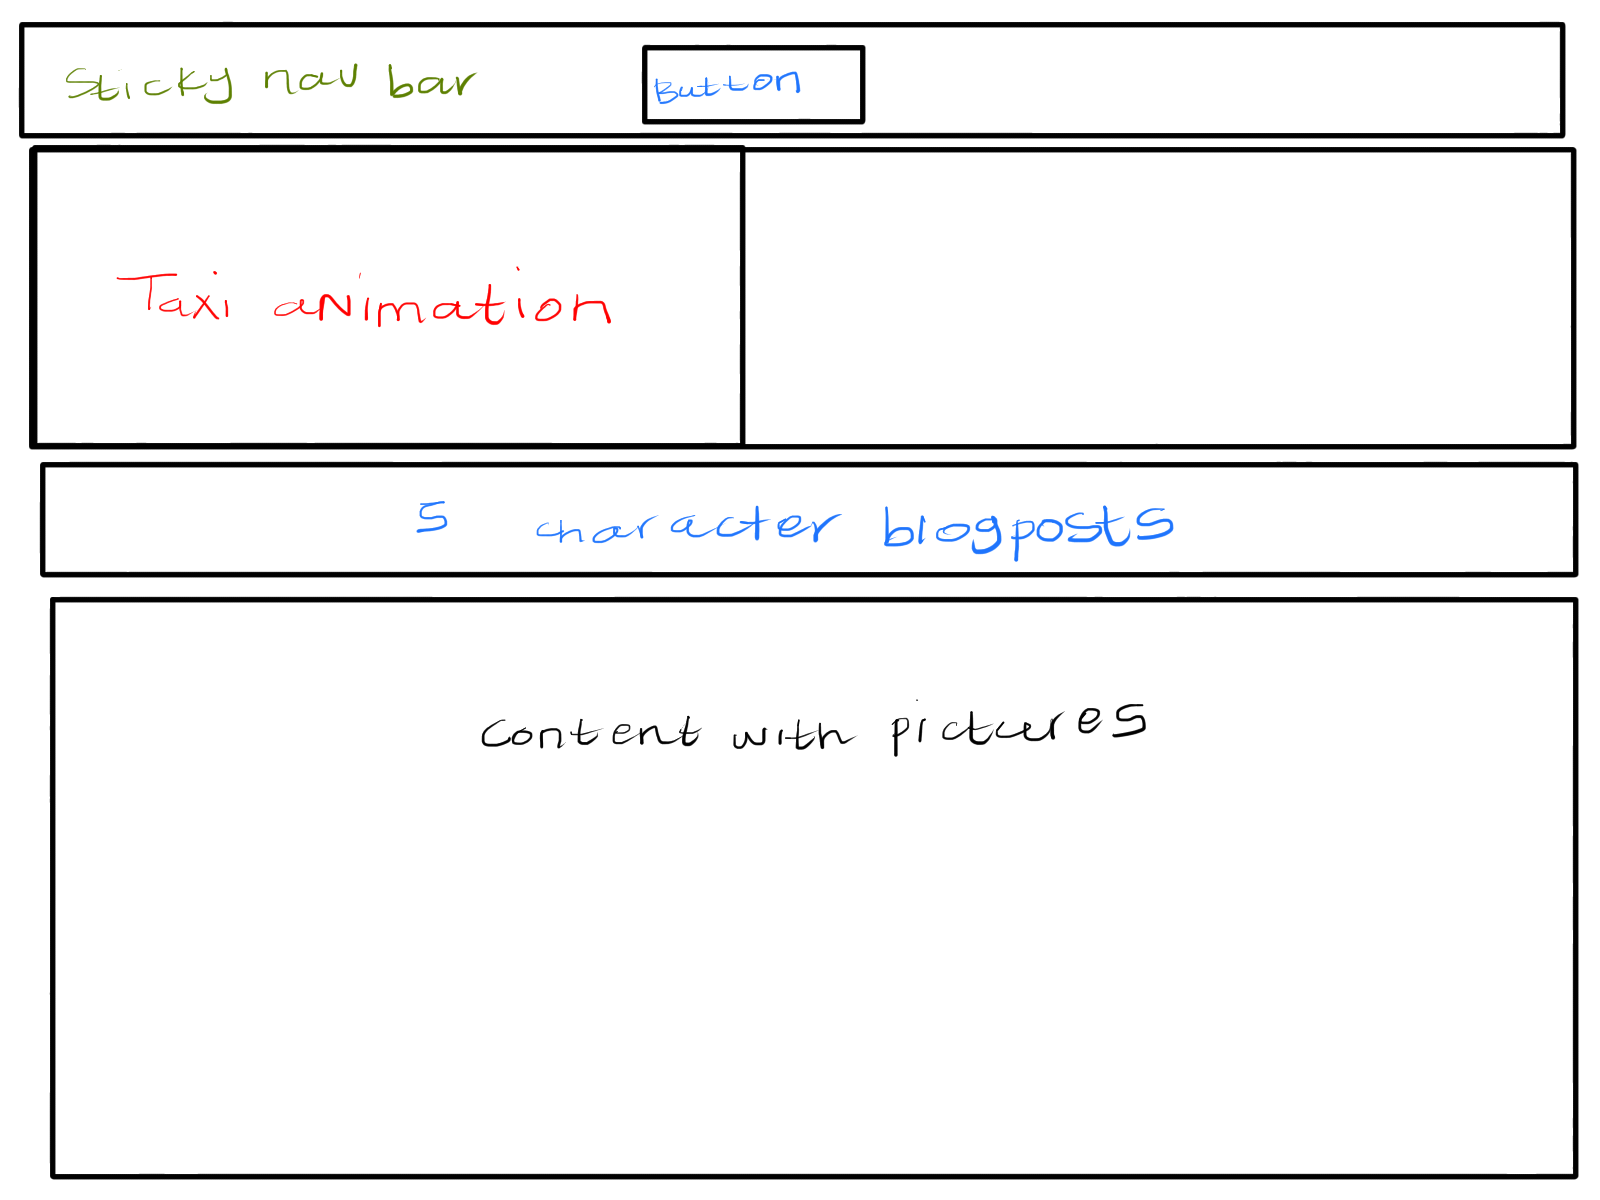 Sticky nav bar
Button
Taxi animation
5 character blogposts
Content with pictures